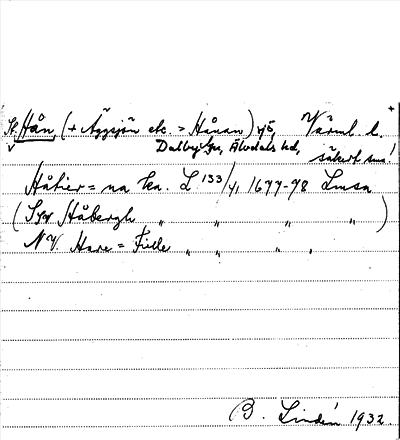 St. Hån, (+ Äggsjön etc. > Hånan) sjö, Värml. l.
Dalby sn, Älvdals hd,
säkert sms!
Håtier = na ka. L 133/41 1677-78 Lmsa
(Syd Håbergh " " " ")
N.V. Hare = Fielle " " " "
B. Lindén 1932.